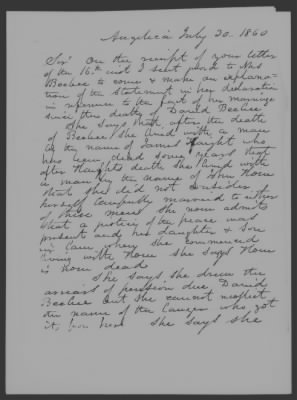 Angelica July 20. 1860
Sir On the receipt of your letter
of the 16th inst I sent word to Mrs
Beebee to come & make an explana-
tion of the statement in her declaration
in reference to the fact of her marriage
since the death of David Beebee
She says that after the death
of Beebee She lived with a man
by the name of James Haught who
has been dead some years that
after Haughts death she lived with
a man by the name of John Howe
that she did not consider
herself lawfully married to either
of these men She now admits
that a justice of the peace was
present and his daughter & Son
in Law when she commenced
living with Howe She says Howe
is now dead
She says she drew the
arrears of pension due David
Beebee but she cannot recollect
the name of the Lawyer who got
it for her She says she